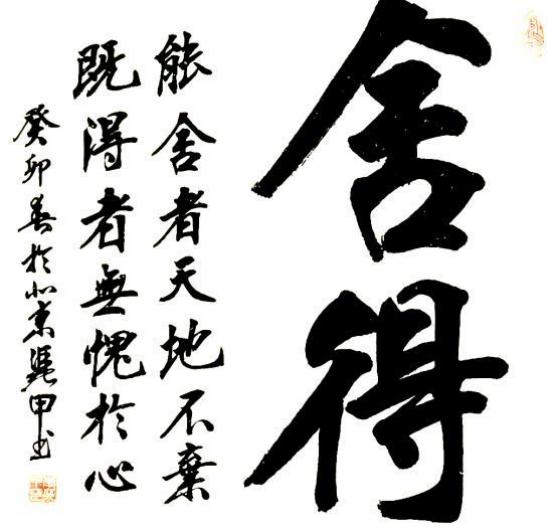 舍得
能舍者天地不棄
既得者無愧於心
癸卯春於北京龔甲書